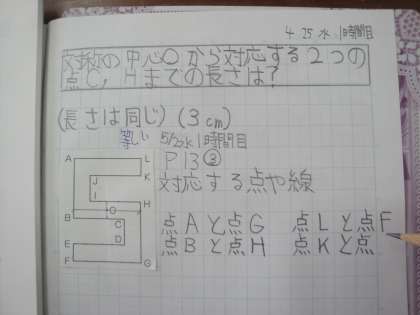 4.25 水 1時間目
対称の中心Oから対応する2つの
点C,Hまでの長さは?
(長さは同じ)(3cm)
等しい 5/2 水 1時間目
P13③
対応する点や線
A L
J K
I
H
O
B C
D
E
F G
点Aと点G 点Lと点F
点Bと点H 点Kと点